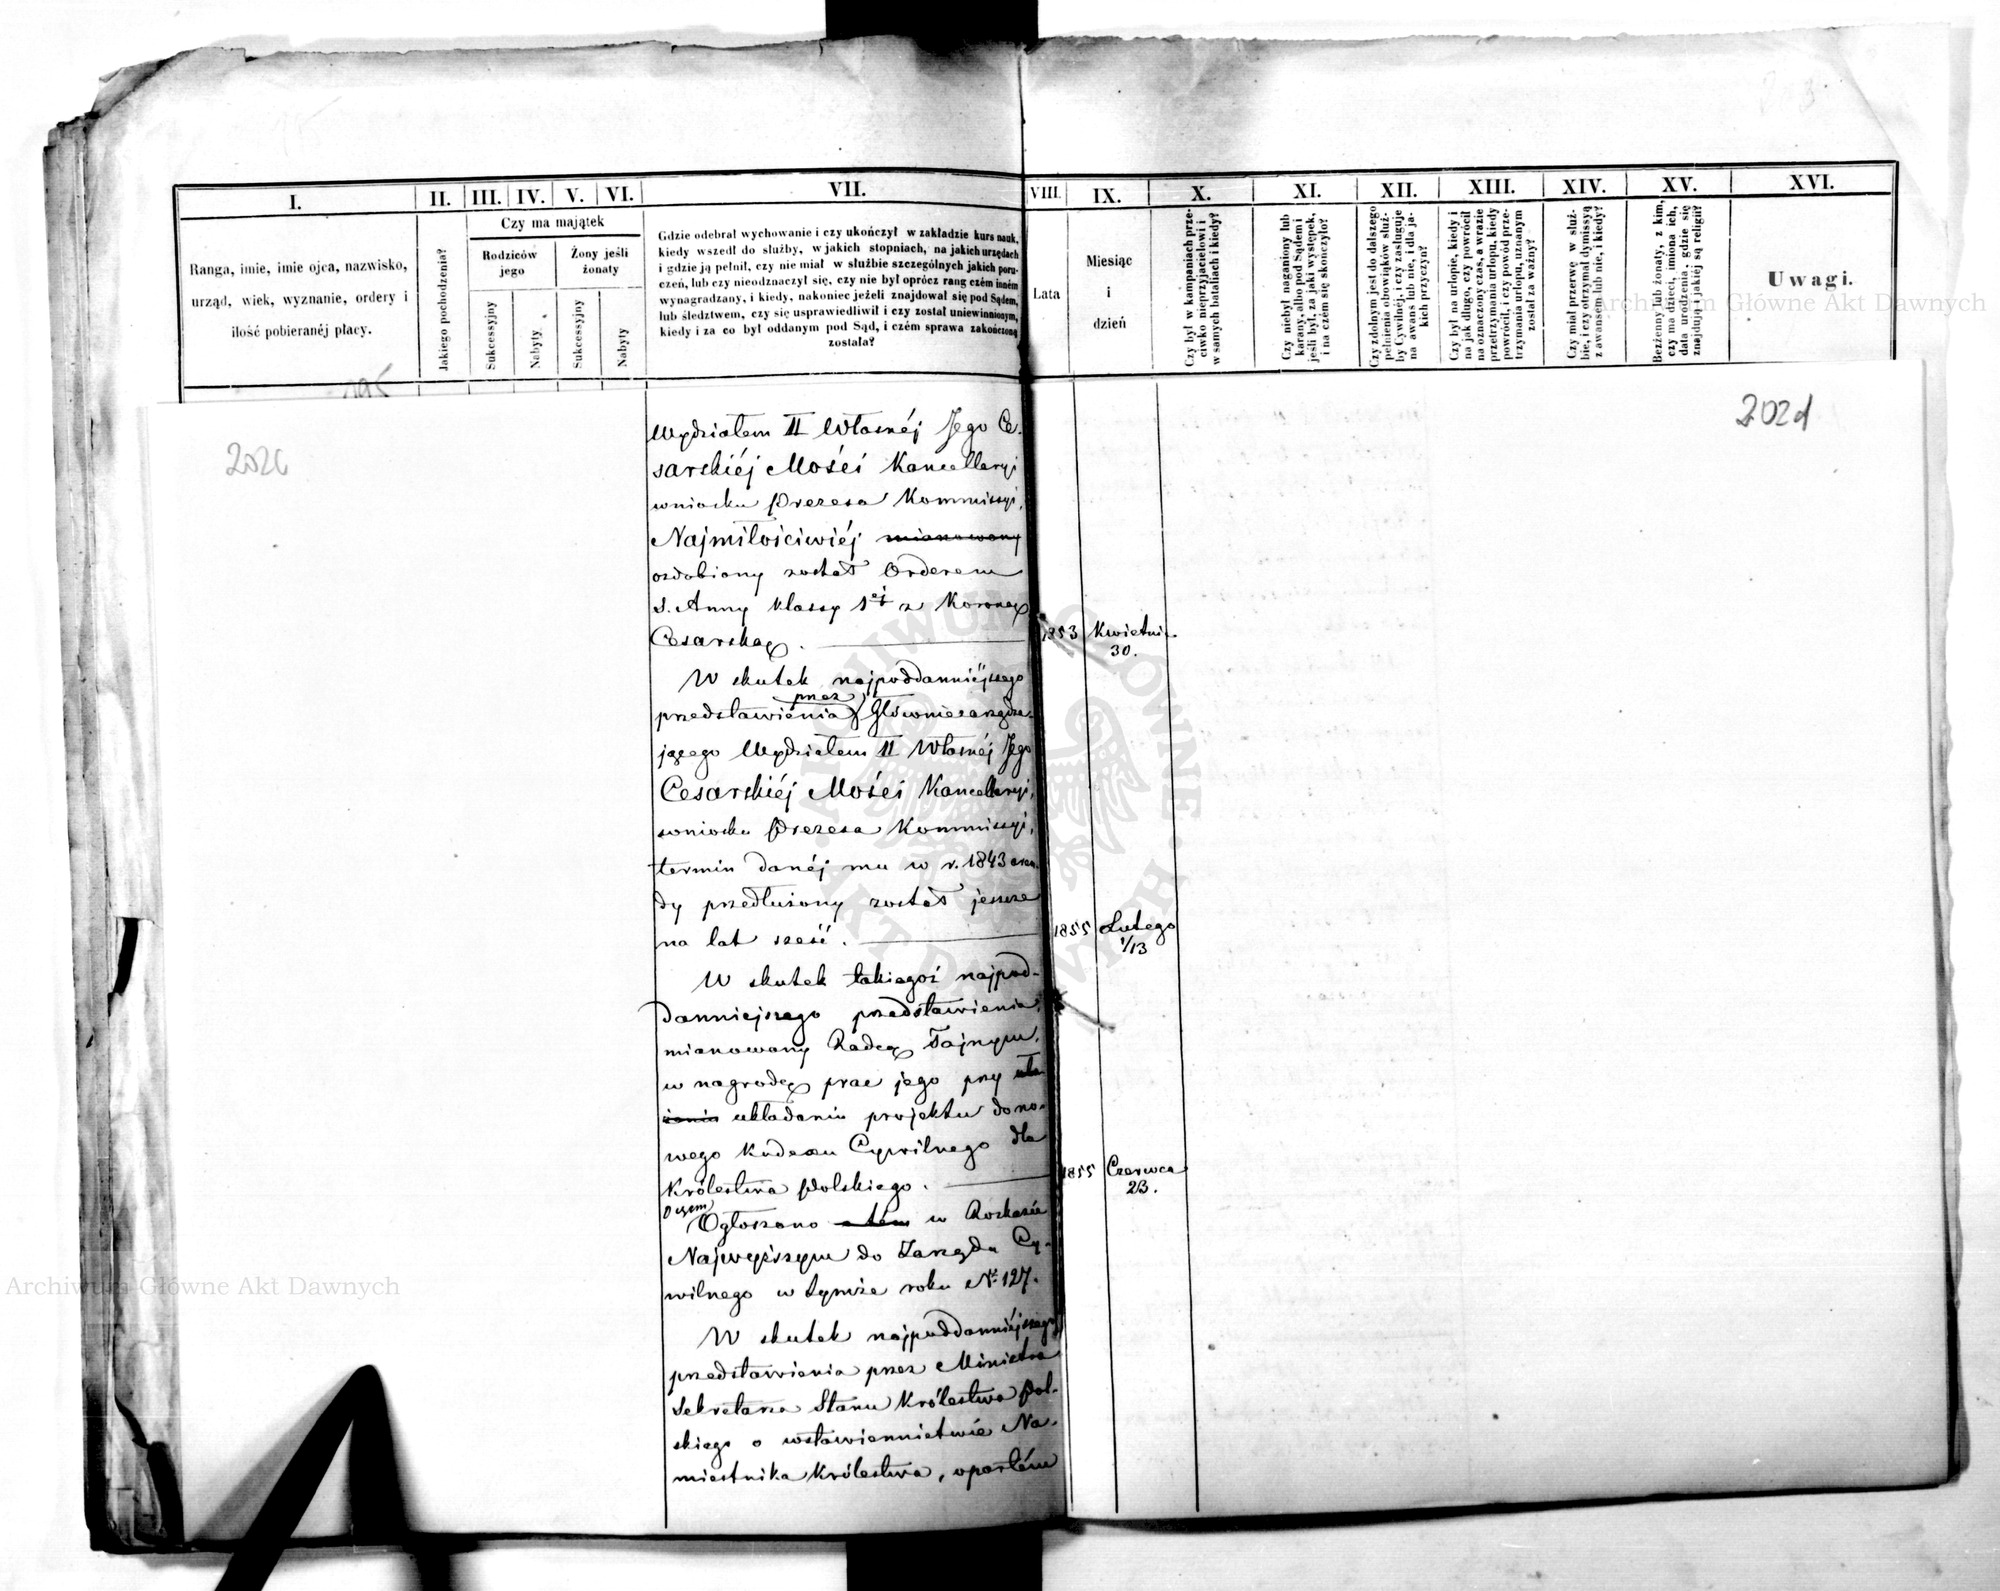 I.
II.
III.
IV.
V.
VI.
VII.
VIII.
IX.
X.
XI.
XII.
XIII.
XIV.
XV.
XVI.
Ranga, imie, imie ojca, nazwisko,
urząd, wiek, wyznanie, ordery i
ilość pobieranéj płacy.
Jakiego pochodzenia?
Czy ma majątek
Rodziców
jego
Żony jeśli
żonaty
Sukcessyjny
Nabyty
Sukcessyjny
Nabyty
Gdzie odebrał wychowanie i czy ukończył w zakładzie kurs nauk,
kiedy wszedł do służby, w jakich stopniach, na jakich urzędach
i gdzie ją pełnił, czy nie miał w służbie szczególnych jakich poru-
czeń, lub czy nieodznaczył się, czy nie był oprócz rang czém inném
wynagradzany, i kiedy, nakoniec jeżeli znajdował się pod Sądem,
lub śledztwem, czy się usprawiedliwił i czy został uniewinnionym,
kiedy i za co był oddanym pod Sąd, i czém sprawa zakończoną
została?
Lata
Miesiąc
i
dzień
Czy był w kampaniach prze-
ciwko nieprzyjacielowi i
w samych bataliach i kiedy?
Czy niebył naganiony lub
karany, albo pod Sądem i
jeśli był, za jaki występek,
i na czém się skończyło?
Czy zdolnym jest do dalszego
pełnienia obowiązków służ-
by Cywilnéj, i czy zasługuje
na awans lub nie, i dla ja-
kich przyczyn?
Czy był na urlopie, kiedy i
na jak długo, czy powrócił
na oznaczony czas, a w razie
przetrzymania urlopu, kiedy
powrócił, i czy powód prze-
trzymania urlopu, uznanym
został za ważny?
Czy miał przerwę w służ-
bie, i czy otrzymał dymissyą
z awansem lub nie, i kiedy?
Bezżenny lub żonaty, z kim,
czy ma dzieci, imiona ich,
data urodzenia, gdzie się
znajdują i jakiéj są religii?
Uwagi.
195
202c
202d
Wydziałem II Własnéj Jego Ce-
sarskiéj Mości Kancellaryi
wniosku Prezesa Kommissyi,
Najmiłościwiéj mianowany
ozdobiony został Orderem
S. Anny klassy 1ej z Koroną
Cesarską.
1853
Kwietnia
30.
W skutek najpoddanniéjszego
przez
przedstawienia Główniezarządza-
jącego Wydziałem II Własnéj Jego
Cesarskiéj Mości Kancellaryi,
wniosku Prezesa Kommissyi,
termin danéj mu w r. 1843 aren-
dy przedłużony został jeszcze
na lat sześć.
1855
Lutego
1/13
W skutek takiegoż najpod-
danniejszego przedstawienia,
mianowany Radcą Tajnym,
w nagrodę prac jego przy
układaniu projektu do no-
wego Kodexu Cywilnego dla
Królestwa Polskiego.
1855
Czerwca
23.
o czem
Ogłoszono o tém w Rozkazie
Najwyższym do Zarządu Cy-
wilnego w tymże roku No 127.
W skutek najpoddanniéjszego
przedstawienia przez Ministra
Sekretarza Stanu Królestwa Pol-
skiego o wstawiennictwie Na-
miestnika Królestwa, opartém
Archiwum Główne Akt Dawnych
Archiwum Główne Akt Dawnych
ARCHIWUM GŁÓWNE AKT DAWNYCH